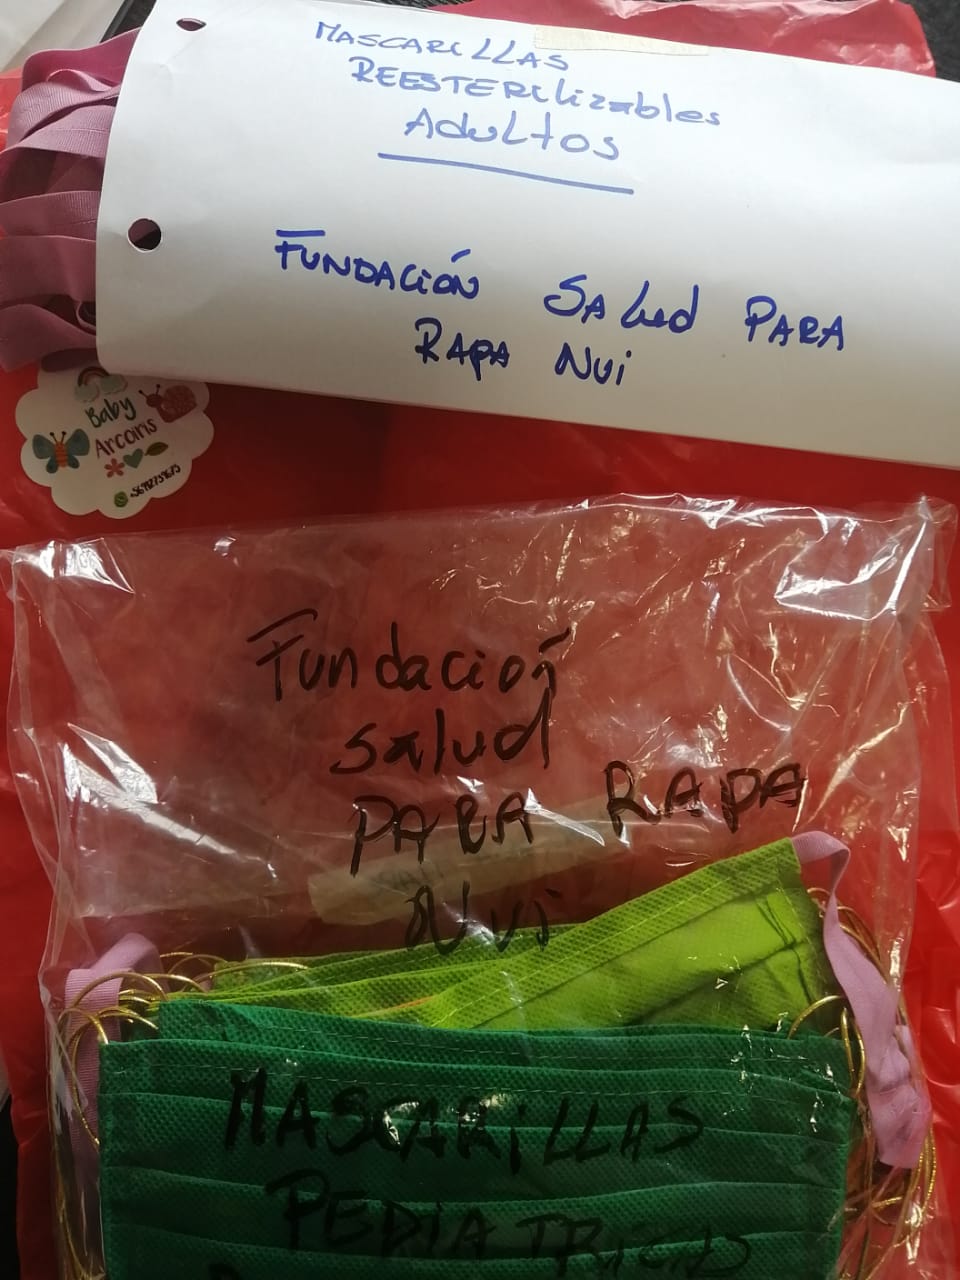 MASCARILLAS
REESTERILizables
Adultos
FUNDACIÓN SALUD PARA
RAPA NUI
Baby
Arcoiris
Fundación
salud
PARA RAPA
NUI
MASCARILLAS
PEDIATRICAS